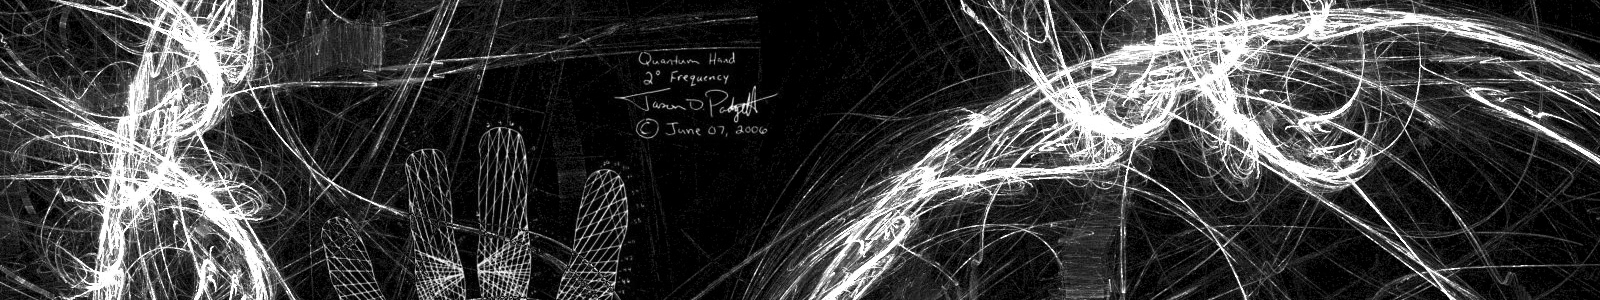 Quantum Hand
2° Frequency
Jason D Padgett
© June 07, 2006